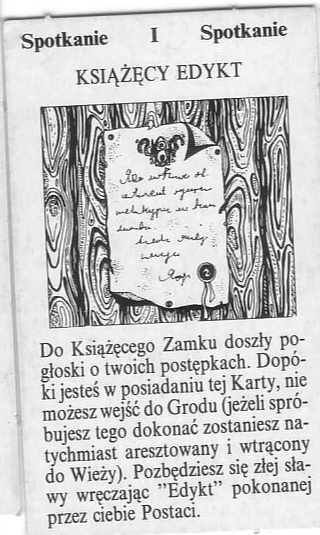 Spotkanie I Spotkanie
KSIĄŻĘCY EDYKT
2
Do Książęcego Zamku doszły po-
głoski o twoich postępkach. Dopó-
ki jesteś w posiadaniu tej Karty, nie
możesz wejść do Grodu (jeżeli spró-
bujesz tego dokonać zostaniesz na-
tychmiast aresztowany i wtrącony
do Wieży). Pozbędziesz się złej sła-
wy wręczając "Edykt" pokonanej
przez ciebie Postaci.